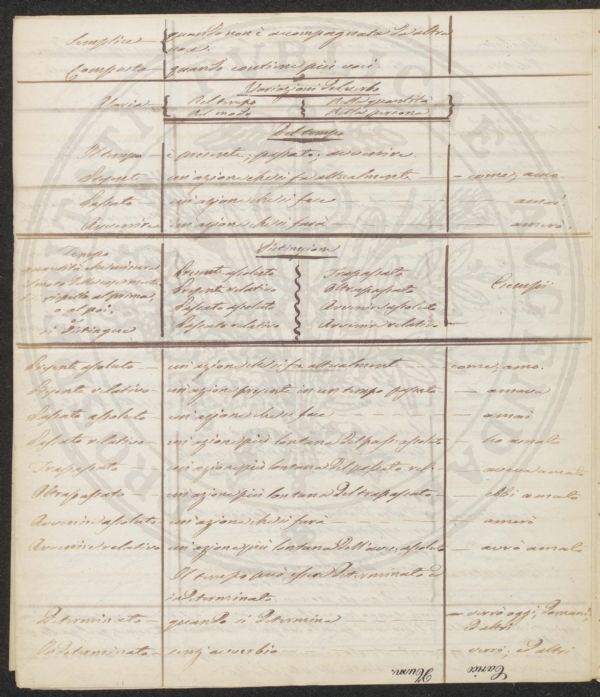 Semplice quando non è accompagnata da altra
voce.
Composto quando contiene più voci
Variazioni del verbo
Varia Del tempo Della quantità
Del modo Della persona
Del tempo
Il tempo è presente, passato, avvenire
Presente un'azione che si fa attualmente — come, amo
Passato un'azione che si fece — amai
Avvenire un'azione che si farà — amerò
Distinzione
Tempo
Presente assoluto Trapassato
Presente relativo Oltrapassato Esempii
Passato assoluto Avvenire assoluto
o al poi.
si Distingue Passato relativo Avvenire relativo
Presente assoluto — un'azione che si fa attualmente — come, amo.
Presente relativo — un'azione presente in un tempo passato — amava
Passato assoluto — un'azione che si fece — amai
Passato relativo — un'azione più lontana del pass. assoluto — ho amato
Trapassato — un'azione più lontana del passato rel. — aveva amato
Oltrapassato — un'azione più lontana del trapassato — ebbi amato
Avvenire assoluto — un'azione che si farà — amerò
Avvenire relativo un'azione più lontana dell'avv. assoluto — avrò amato
Il tempo può esser determinato o
indeterminato.
Determinato — quando si determina — verrò oggi, domani,
ed altri
Indeterminato — senz'avverbio — verrò, ed altri